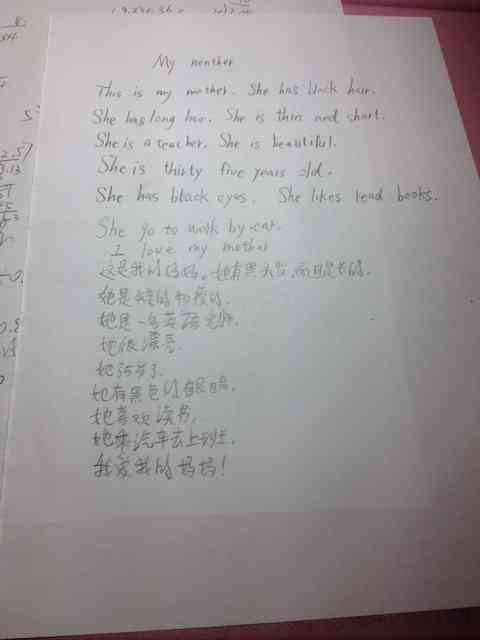 My mother
This is my mother. She has black hair.
She has long hair. She is thin and short.
She is a teacher. She is beautiful.
She is thirty five years old.
She has black eyes. She likes read books.
She go to work by car.
I love my mother
这是我的妈妈。她有黑头发,而且是长的。
她是矮的和瘦的.
她是一名英语老师.
她很漂亮.
她35岁了.
她有黑色的眼睛.
她喜欢读书.
她乘汽车去上班.
我爱我的妈妈!